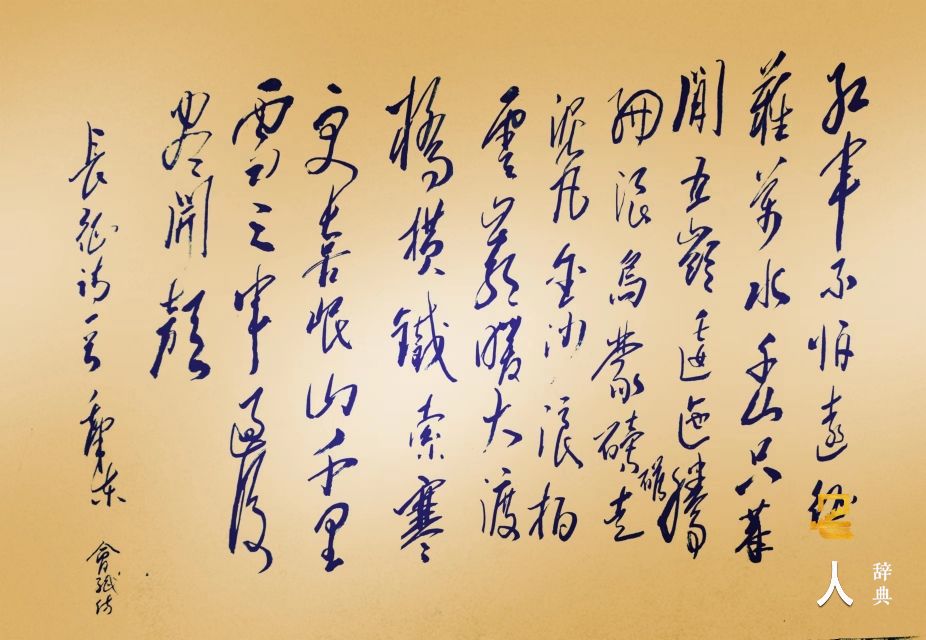 紅軍不怕遠征
難萬水千山只等
閒五嶺逶迤騰
細浪烏蒙磅礴走
泥丸金沙浪拍
雲崖暖大渡
橋橫鐵索寒
更喜岷山千里
雪三軍過後
盡開顏
長征詩一首 毛澤東
人
辞典